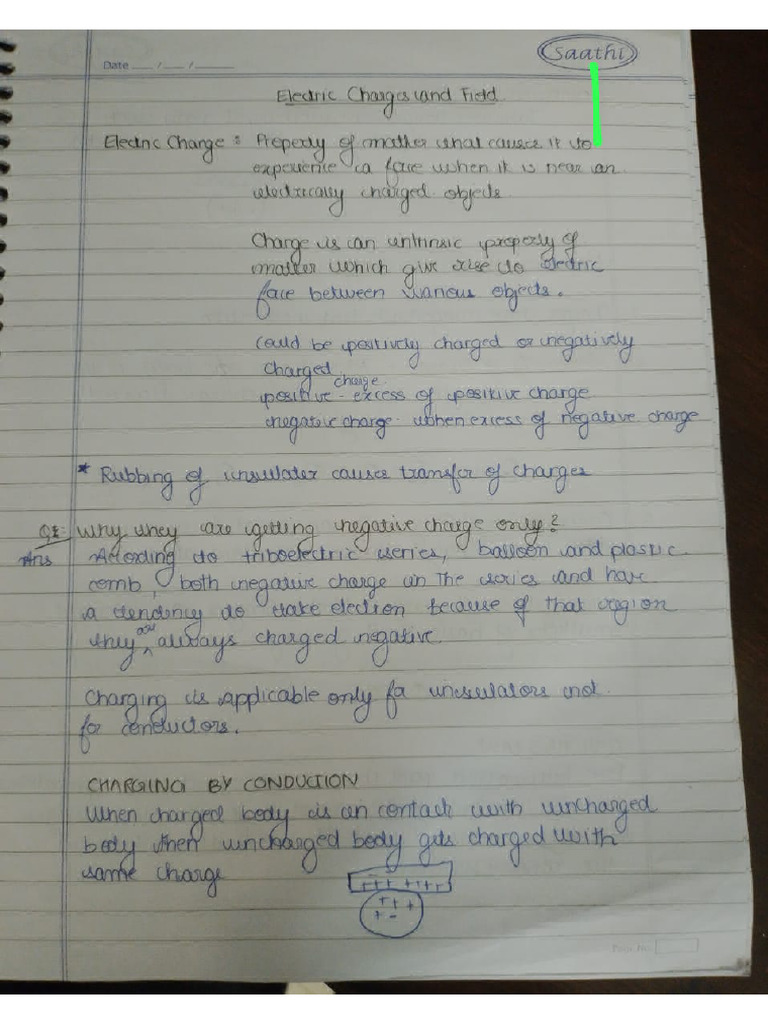 Saathi
Date __/__/____
Electric Charges and Field
Electric Charge : Property of matter that causes it to
experience a force when it is near an
electrically charged objects
Charge is an intrinsic property of
matter which give rise to electric
force between various objects.
Could be positively charged or negatively
Charged.
positive charge - excess of positive charge
negative charge - when excess of negative charge
* Rubbing of insulator causes transfer of charges
Q1: Why they are getting negative charge only?
Ans According to triboelectric series, balloon and plastic
comb, both negative charge in the series and have
a tendency to take electron because of that region
they are always charged negative.
Charging is applicable only for insulators not
for conductors.
CHARGING BY CONDUCTION
When charged body is in contact with uncharged
body then uncharged body gets charged with
same charge
+++ ++++
+++
+-
Page No.